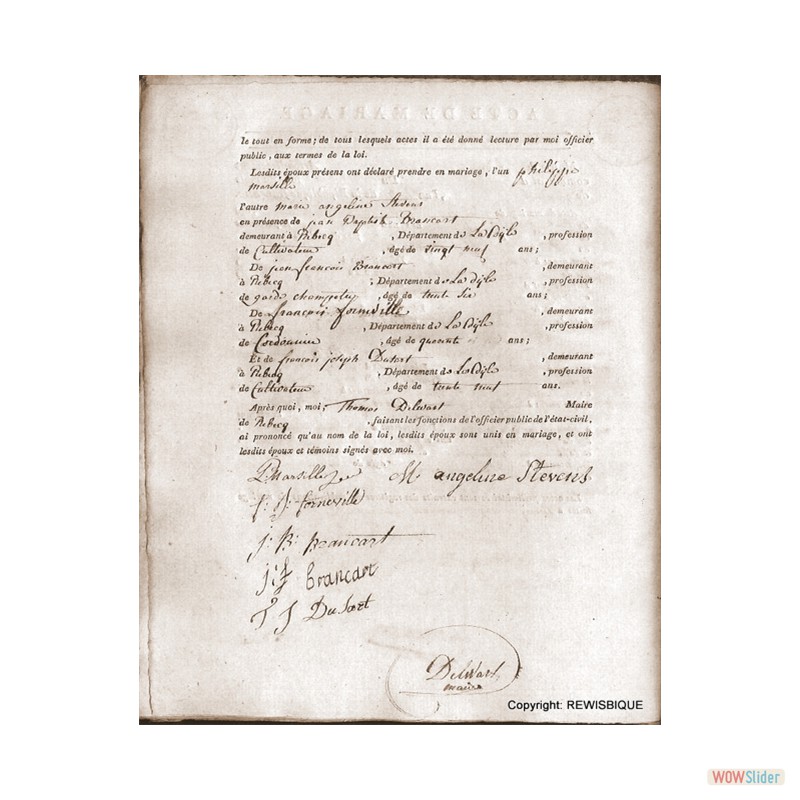 ACTE DE MARIAGE
le tout en forme ; de tous lesquels actes il a été donné lecture par moi officier
public, aux termes de la loi.
Lesdits époux présens ont déclaré prendre en mariage, l'un philippe
marsille
l'autre marie angeline Stevens
en présence de jean Baptiste Brancart
demeurant à Rebecq , Département de La Dijle , profession
de Cultivateur , âgé de vingt neuf ans ;
De jean françois Brancart , demeurant
à Rebecq , Département de La dijle , profession
de garde champetre , âgé de trente six ans ;
De françois forneville , demeurant
à Rebecq , Département de La Dijle , profession
de Cordonnier , âgé de quarente ans ;
Et de françois joseph Dusart , demeurant
à Rebecq , Département de La Dijle , profession
de Cultivateur , âgé de trente neuf ans.
Après quoi, moi, Thomas Delwart Maire
de Rebecq , faisant les fonctions de l'officier public de l'état-civil,
ai prononcé qu'au nom de la loi, lesdits époux sont unis en mariage, et ont
lesdits époux et témoins signés avec moi.
P. Marsille M angeline Stevens
f: j: forneville
j: B: Brancart
j: f Brancart
f j Dusart
Delwart
maire
Copyright: REWISBIQUE
WOWSlider